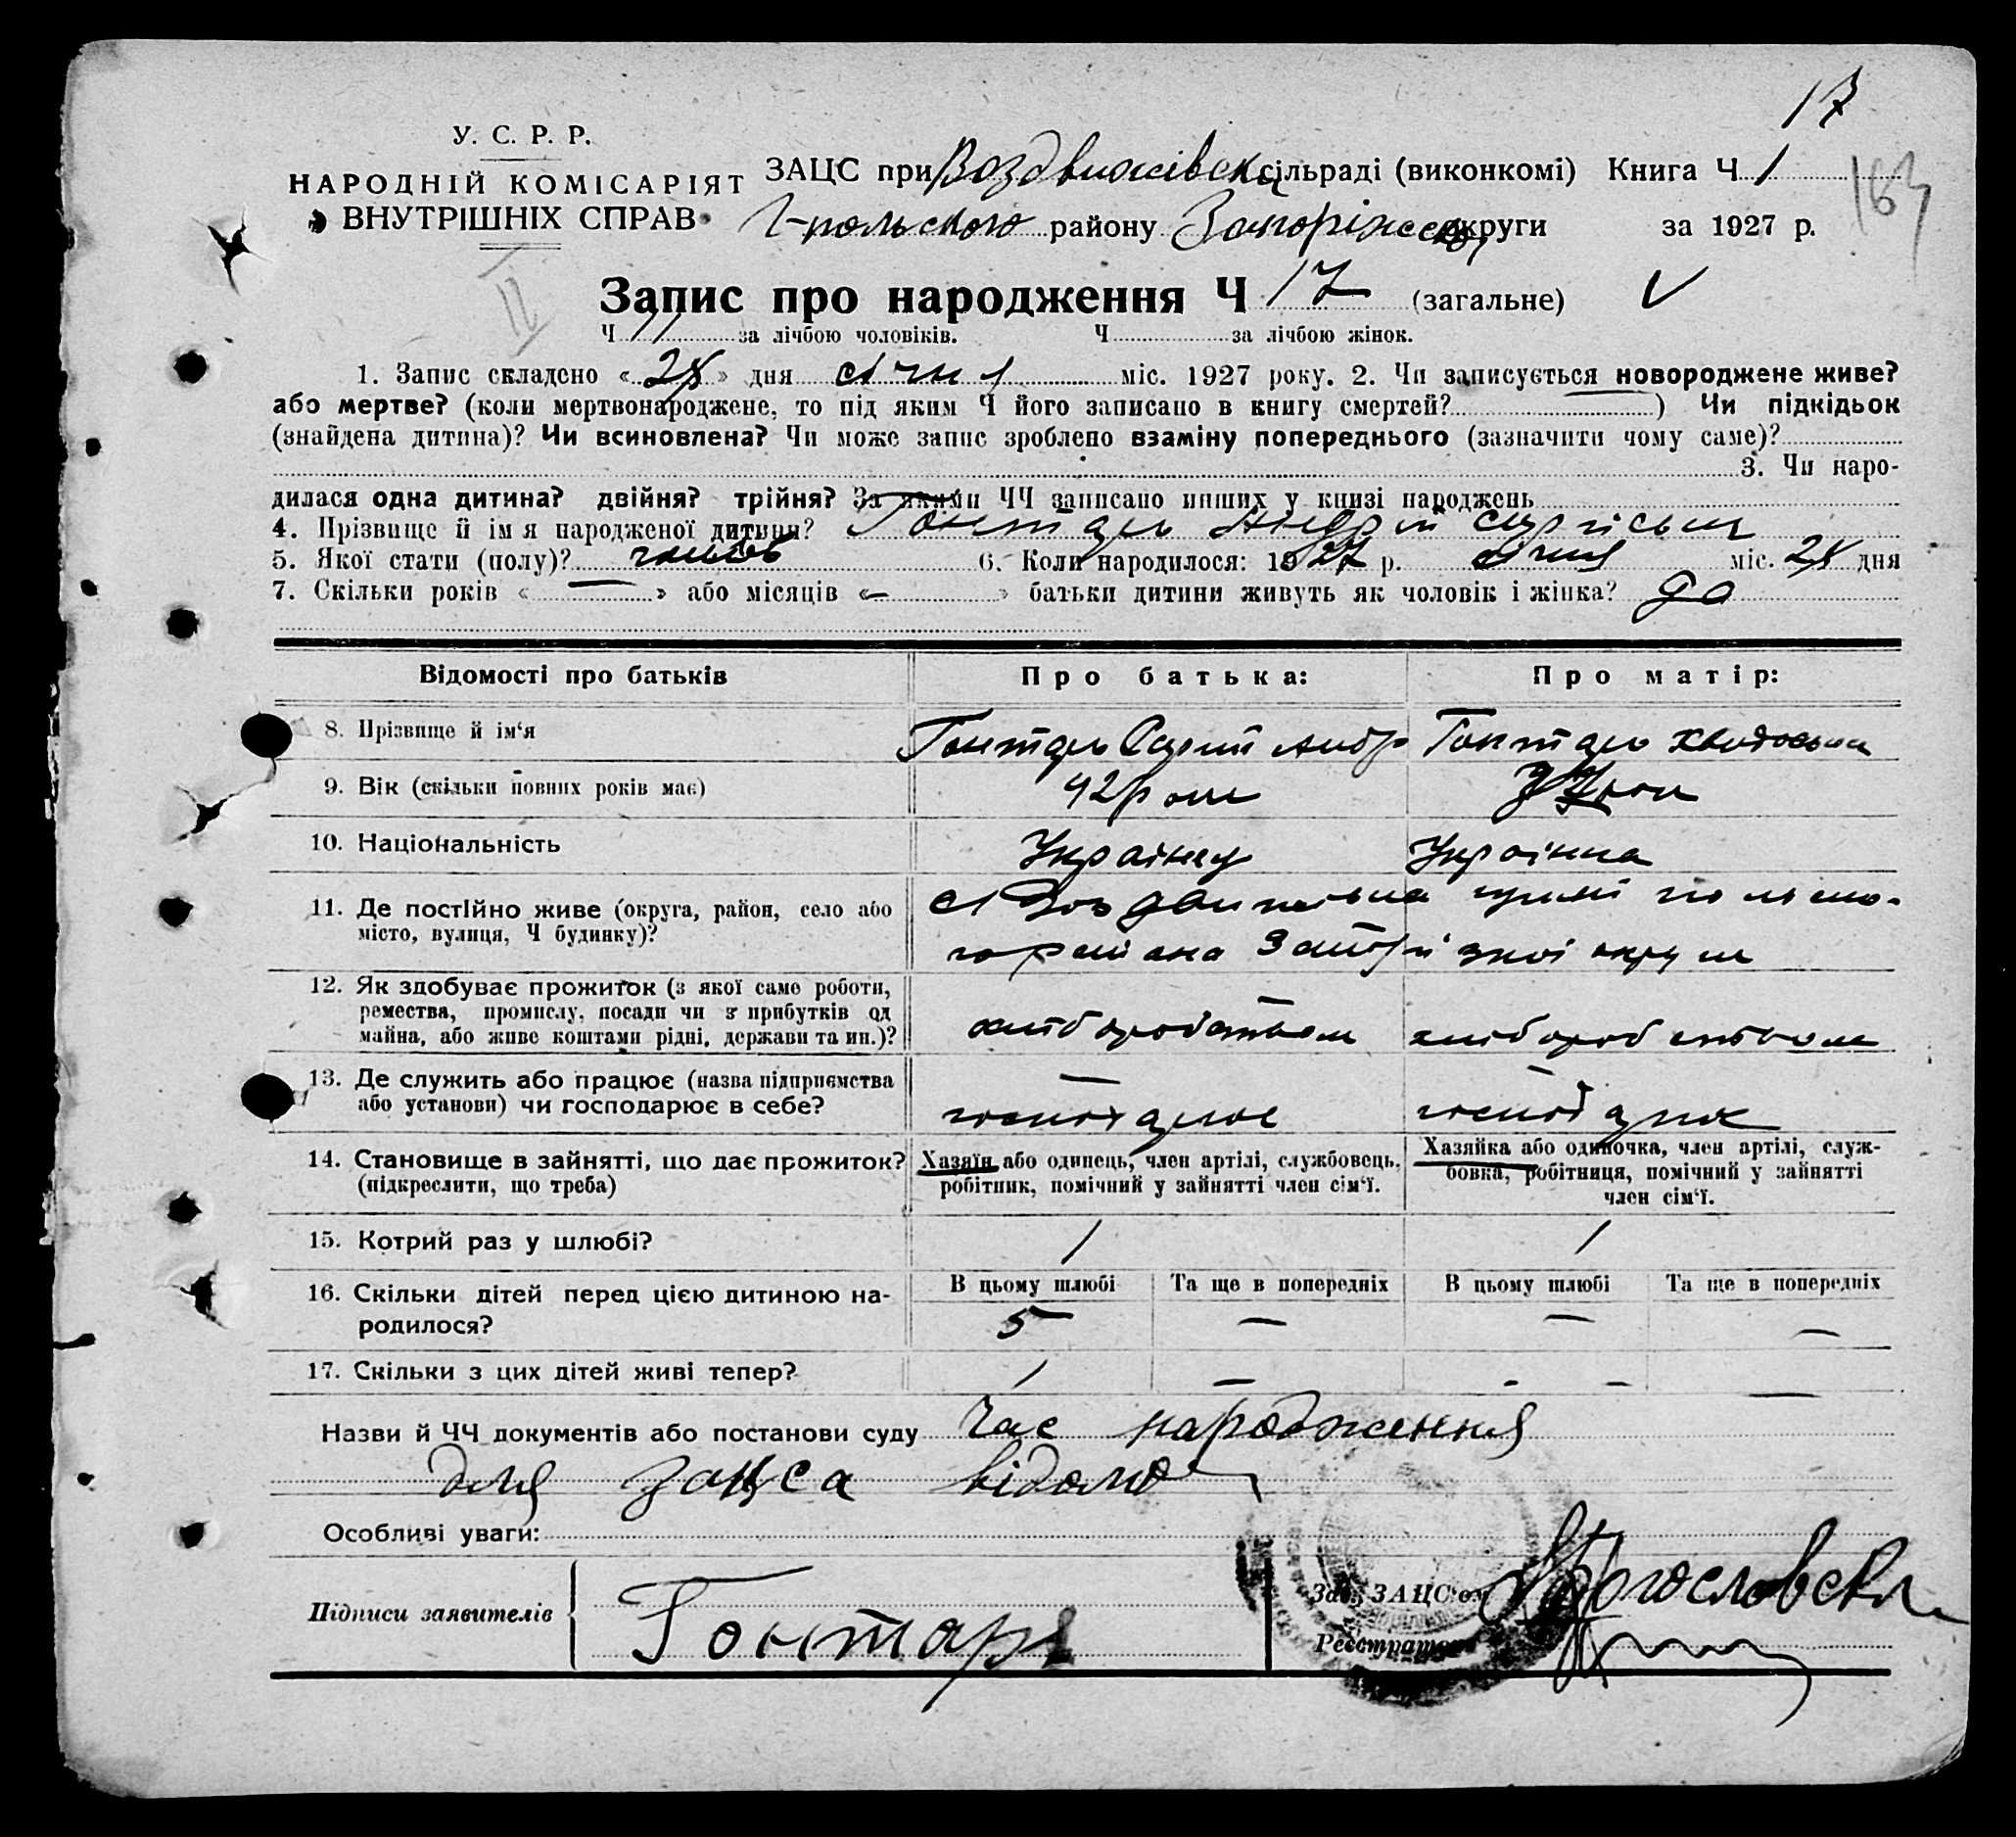 17
У. С. Р. Р.
НАРОДНІЙ КОМІСАРІЯТ
ВНУТРІШНІХ СПРАВ
ЗАЦС при Воздвижівськ сільраді (виконкомі) Книга Ч 1
Г-польского району Запоріжськ округи за 1927 р.
163
Запис про народження Ч 17 (загальне)
Ч 11 за лічбою чоловіків. Ч за лічбою жінок.
1. Запис складено « 28 » дня січня міс. 1927 року. 2. Чи записується новороджене живе?
або мертве? (коли мертвонароджене, то під яким Ч його записано в книгу смертей? ) Чи підкідьок
(знайдена дитина)? Чи всиновлена? Чи може запис зроблено взаміну попереднього (зазначити чому саме)?
3. Чи наро-
дилася одна дитина? двійня? трійня? За якими ЧЧ записано инших у книзі народжень
4. Прізвище й ім я народженої дитини? Гонтарь Андрій Сергієвич
5. Якої стати (полу)? 6. Коли народилося: 1927 р. січня міс. 28 дня
7. Скільки років « — » або місяців « – » батьки дитини живуть як чоловік і жінка? да
Відомості про батьків
Про батька:
Про матір:
8. Прізвище й ім'я
Гонтарь Сергій Андр
Гонтарь
9. Вік (скільки повних років має)
42 роки
10. Національність
Украінец
Украінка
11. Де постійно живе (округа, район, село або
місто, вулиця, Ч будинку)?
12. Як здобуває прожиток (з якої саме роботи,
ремества, промислу, посади чи з прибутків од
майна, або живе коштами рідні, держави та ин.)?
хліборобством
хліборобством
13. Де служить або працює (назва підприємства
або установи) чи господарює в себе?
господарює
господарює
14. Становище в зайнятті, що дає прожиток?
(підкреслити, що треба)
Хазяїн або одинець, член артілі, службовець,
робітник, помічний у зайнятті член сім'ї.
Хазяйка або одиночка, член артілі, служ-
бовка, робітниця, помічний у зайнятті
член сім'ї.
15. Котрий раз у шлюбі?
1
1
16. Скільки дітей перед цією дитиною на-
родилося?
В цьому шлюбі
Та ще в попередніх
В цьому шлюбі
Та ще в попередніх
5 — — —
17. Скільки з цих дітей живі тепер?
1 — - - —
Назви й ЧЧ документів або постанови суду Час народження
для зацса відомо
Особливі уваги:
Підписи заявителів
Гонтарь
Зав. ЗАЦС'ом Богословськ
Реєстратор